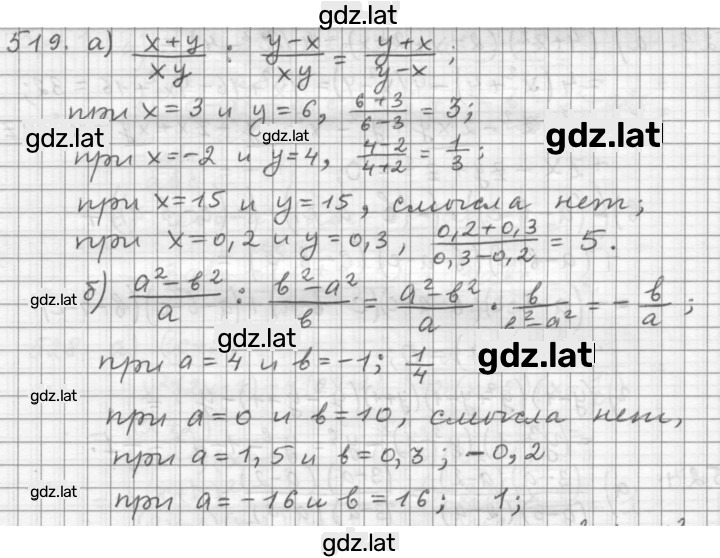 gdz.lat
519. а) (x+y)/(xy) : (y−x)/(xy) = (y+x)/(y−x);
при x=3 и y=6, (6+3)/(6−3) = 3;
gdz.lat gdz.lat gdz.lat
при x=−2 и y=4, (4−2)/(4+2) = 1/3;
при x=15 и y=15, смысла нет;
при x=0,2 и y=0,3, (0,2+0,3)/(0,3−0,2) = 5.
gdz.lat б) (a²−b²)/a : (b²−a²)/b = (a²−b²)/a · b/(b²−a²) = −b/a;
gdz.lat gdz.lat
при a=4 и b=−1; 1/4
gdz.lat
при a=0 и b=10, смысла нет,
при a=1,5 и b=0,3; −0,2
gdz.lat
при a=−16 и b=16; 1;
gdz.lat